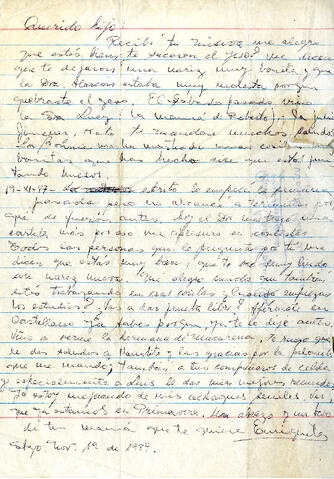 Querido Hijo:
Recibí tu misiva me alegro
que estés bien, te sacaron el yeso? me dicen
que te dejaron una nariz muy bonita y que
la Dra Alarcón estaba muy molesta porque
quebraste el yeso. El Sábado pasado vino
la Sra Luz, (la mamá de Roberto), la Julia
Jimenez, Nato te mandan muchos saludos
La Bonnie me ha mostrado unas cosas
bonitas que has hecho dice que está juntando
tando unos
19-XI-87- La escrito la empecé la semana
pasada pero no alcancé a terminarla por
que de querían antes. Hoy el Dr me trajo una
cartita más por eso me apresuro en contestar
Todas las personas que le pregunto por ti me
dicen que estás muy bien, que te ves muy lindo
con nariz nueva. Me alegro mucho que también
estés trabajando en esas cositas. Cuando empiezan
los estudios? Vas a dar prueba libre? Afírmate en
Castellano ya sabes porque, ya te lo dije antes.
Vino a verme la hermana de Macarena. Te ruego que
le des saludos a Manolito y las gracias por la pelonita
que me mandó; también a tus compañeros de celda
y especialmente a Luis le das mis mejores recuerdos
Yo estoy mejorando de mis achaques seniles. Ves
que ya estamos en Primavera. Un abrazo y un beso
de tu mamá que te quiere Enriqueta
Stgo. Nov. 19 de 1987.